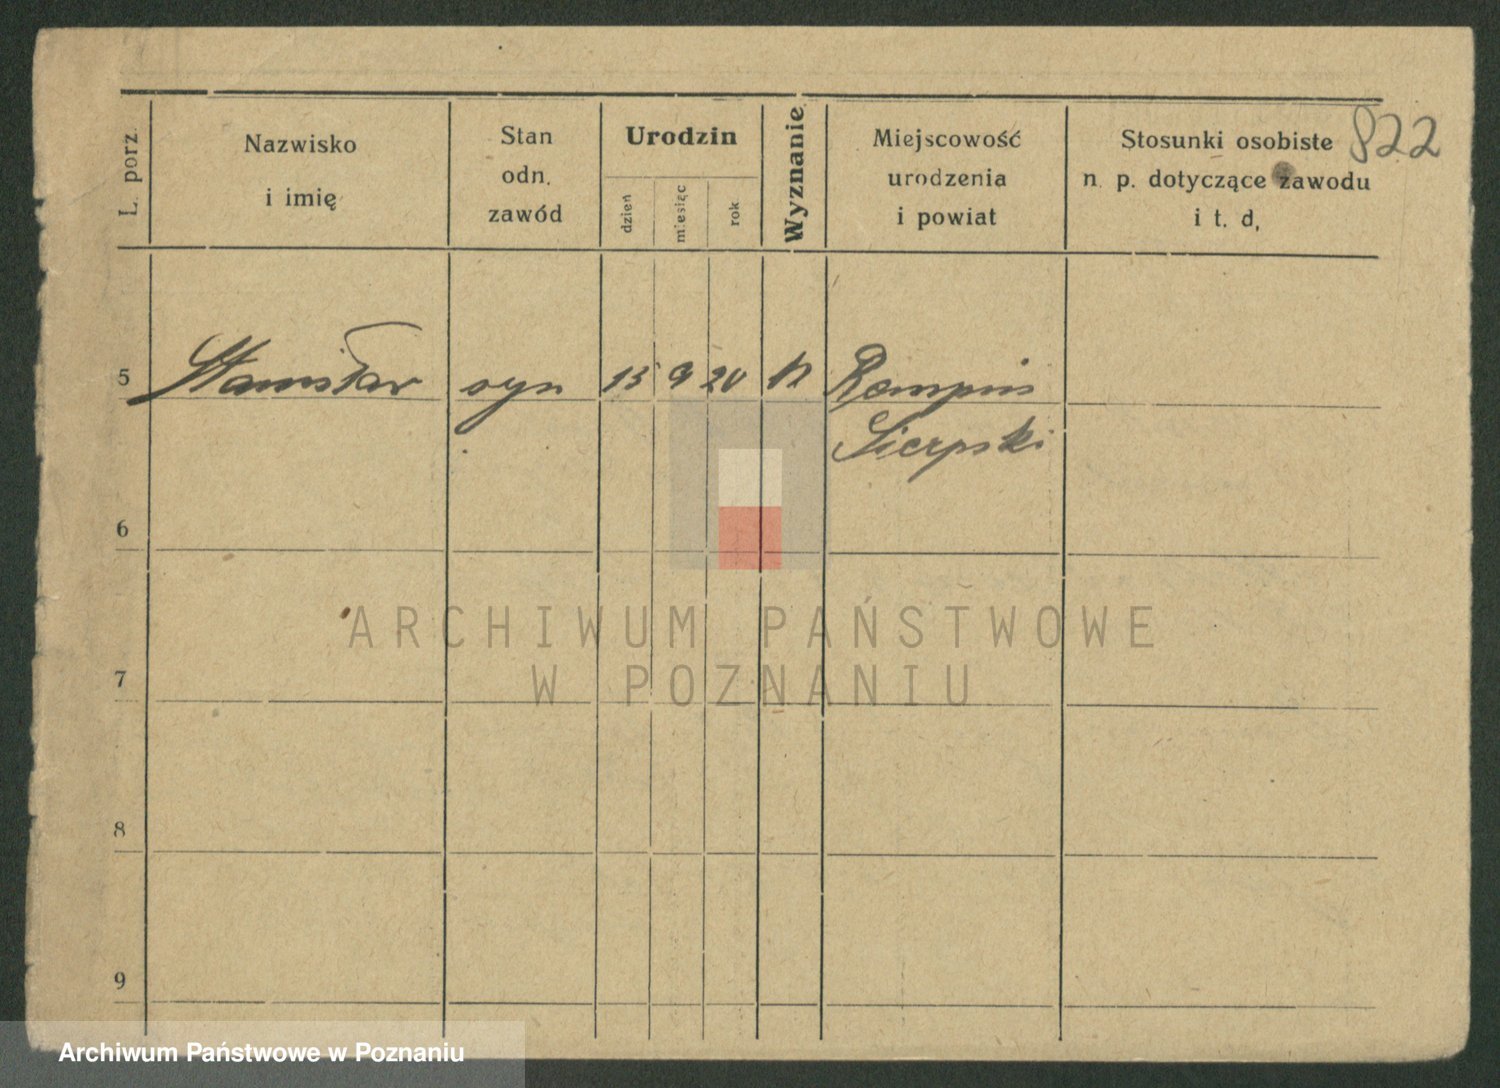 822
L. porz.
Nazwisko
i imię
Stan
odn.
zawód
Urodzin
dzień
miesiąc
rok
Wyznanie
Miejscowość
urodzenia
i powiat
Stosunki osobiste
n. p. dotyczące zawodu
i t. d,
5 Stanisław syn 15 9 20 Rempin
Sierpski
6
7
8
9
ARCHIWUM PAŃSTWOWE
W POZNANIU
Archiwum Państwowe w Poznaniu